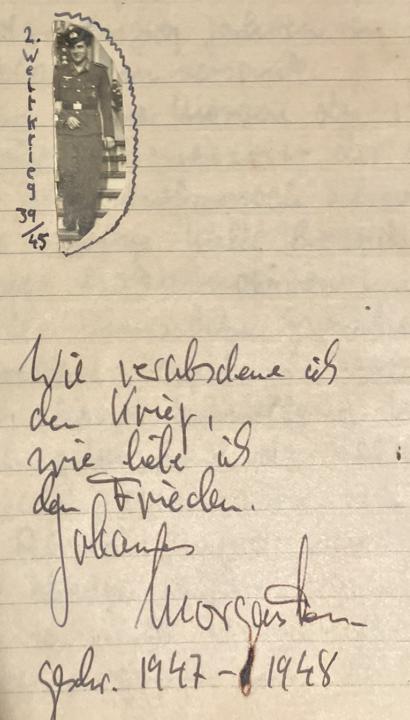 2. Weltkrieg 39/45
Wie verabscheue ich
den Krieg,
wie liebe ich
den Frieden.
Johannes
Morgenstern
geschr. 1947 - 1948